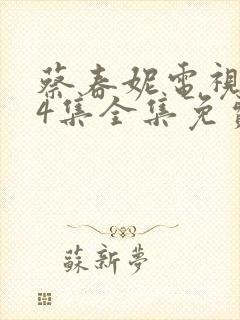 蔡春妮電視
4集全集免費
蘇新夢